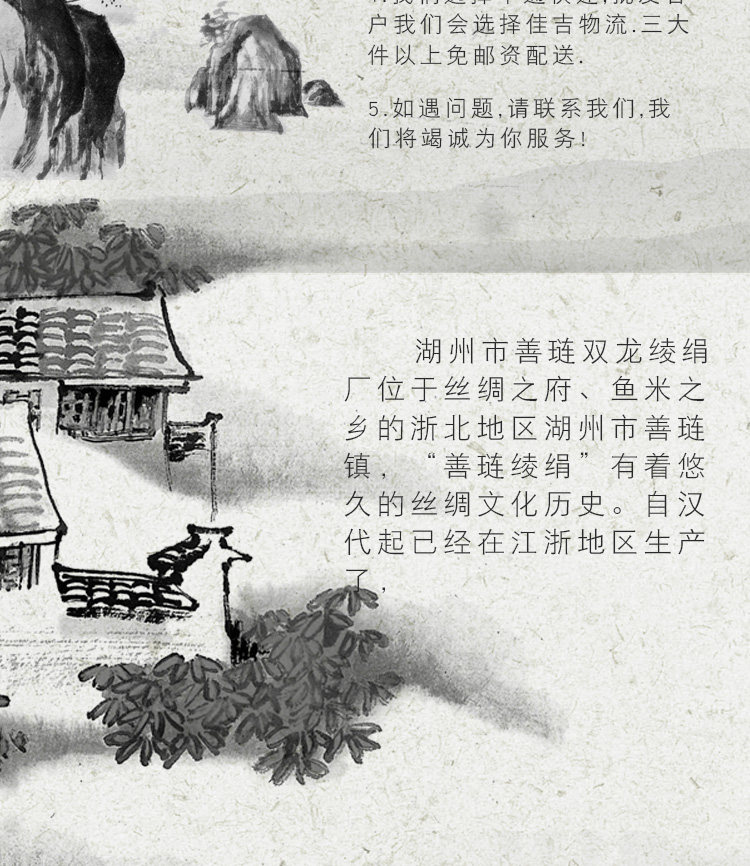 户我们会选择佳吉物流.三大
件以上免邮资配送.
5.如遇问题,请联系我们,我
们将竭诚为你服务!
湖州市善琏双龙绫绢
厂位于丝绸之府、鱼米之
乡的浙北地区湖州市善琏
镇，“善琏绫绢”有着悠
久的丝绸文化历史。自汉
代起已经在江浙地区生产
了，